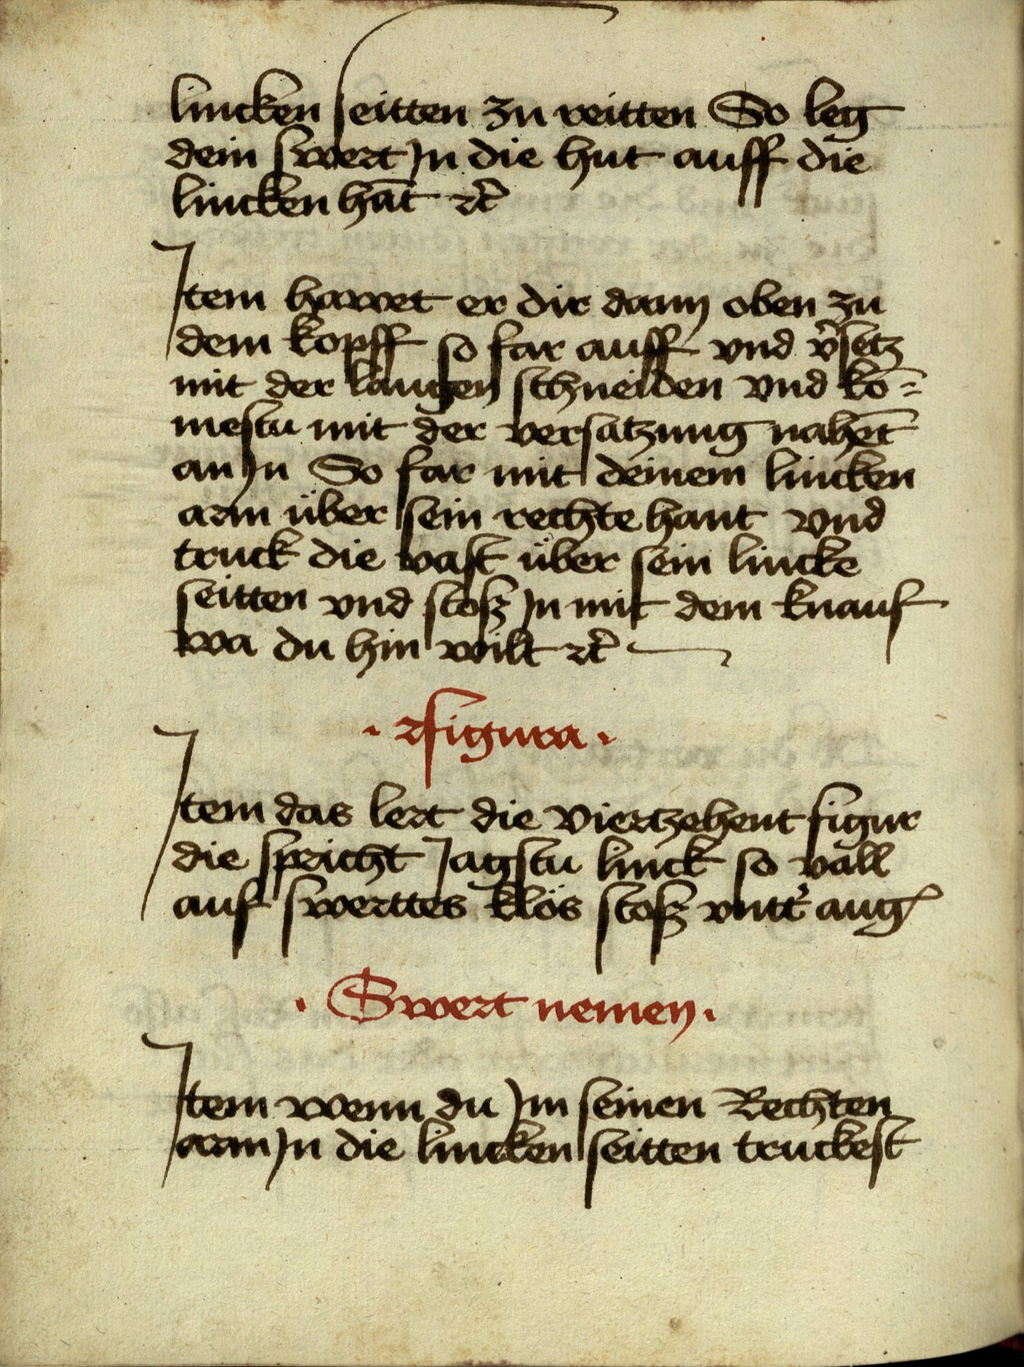 lincken seitten zu reitten So leg
dein swert Jn die hut auff die
lincken hāt ꝛc̄
Jtem hawet er dir dann oben zu
dem kopff so far auff vnd v̾setz
mit der langen schneiden vnd ko¯=
mestu mit der versatzung nahēt
an Jn So far mit deinem lincken
arm über sein rechte hant vnd
truck die vast über sein lincke
seitten vnd stosz Jn mit dem knauf
wa du hin wilt ꝛc̄
· ꝛfigura ·
Jtem das lert die viertzehent figur
die spricht Jagstu linck so vall
auf swerttes klös stosz vntt̾ aug
· Swert nemen ·
Jtem wenn du Jm seinen Rechten
arm Jn die lincken seitten truckest